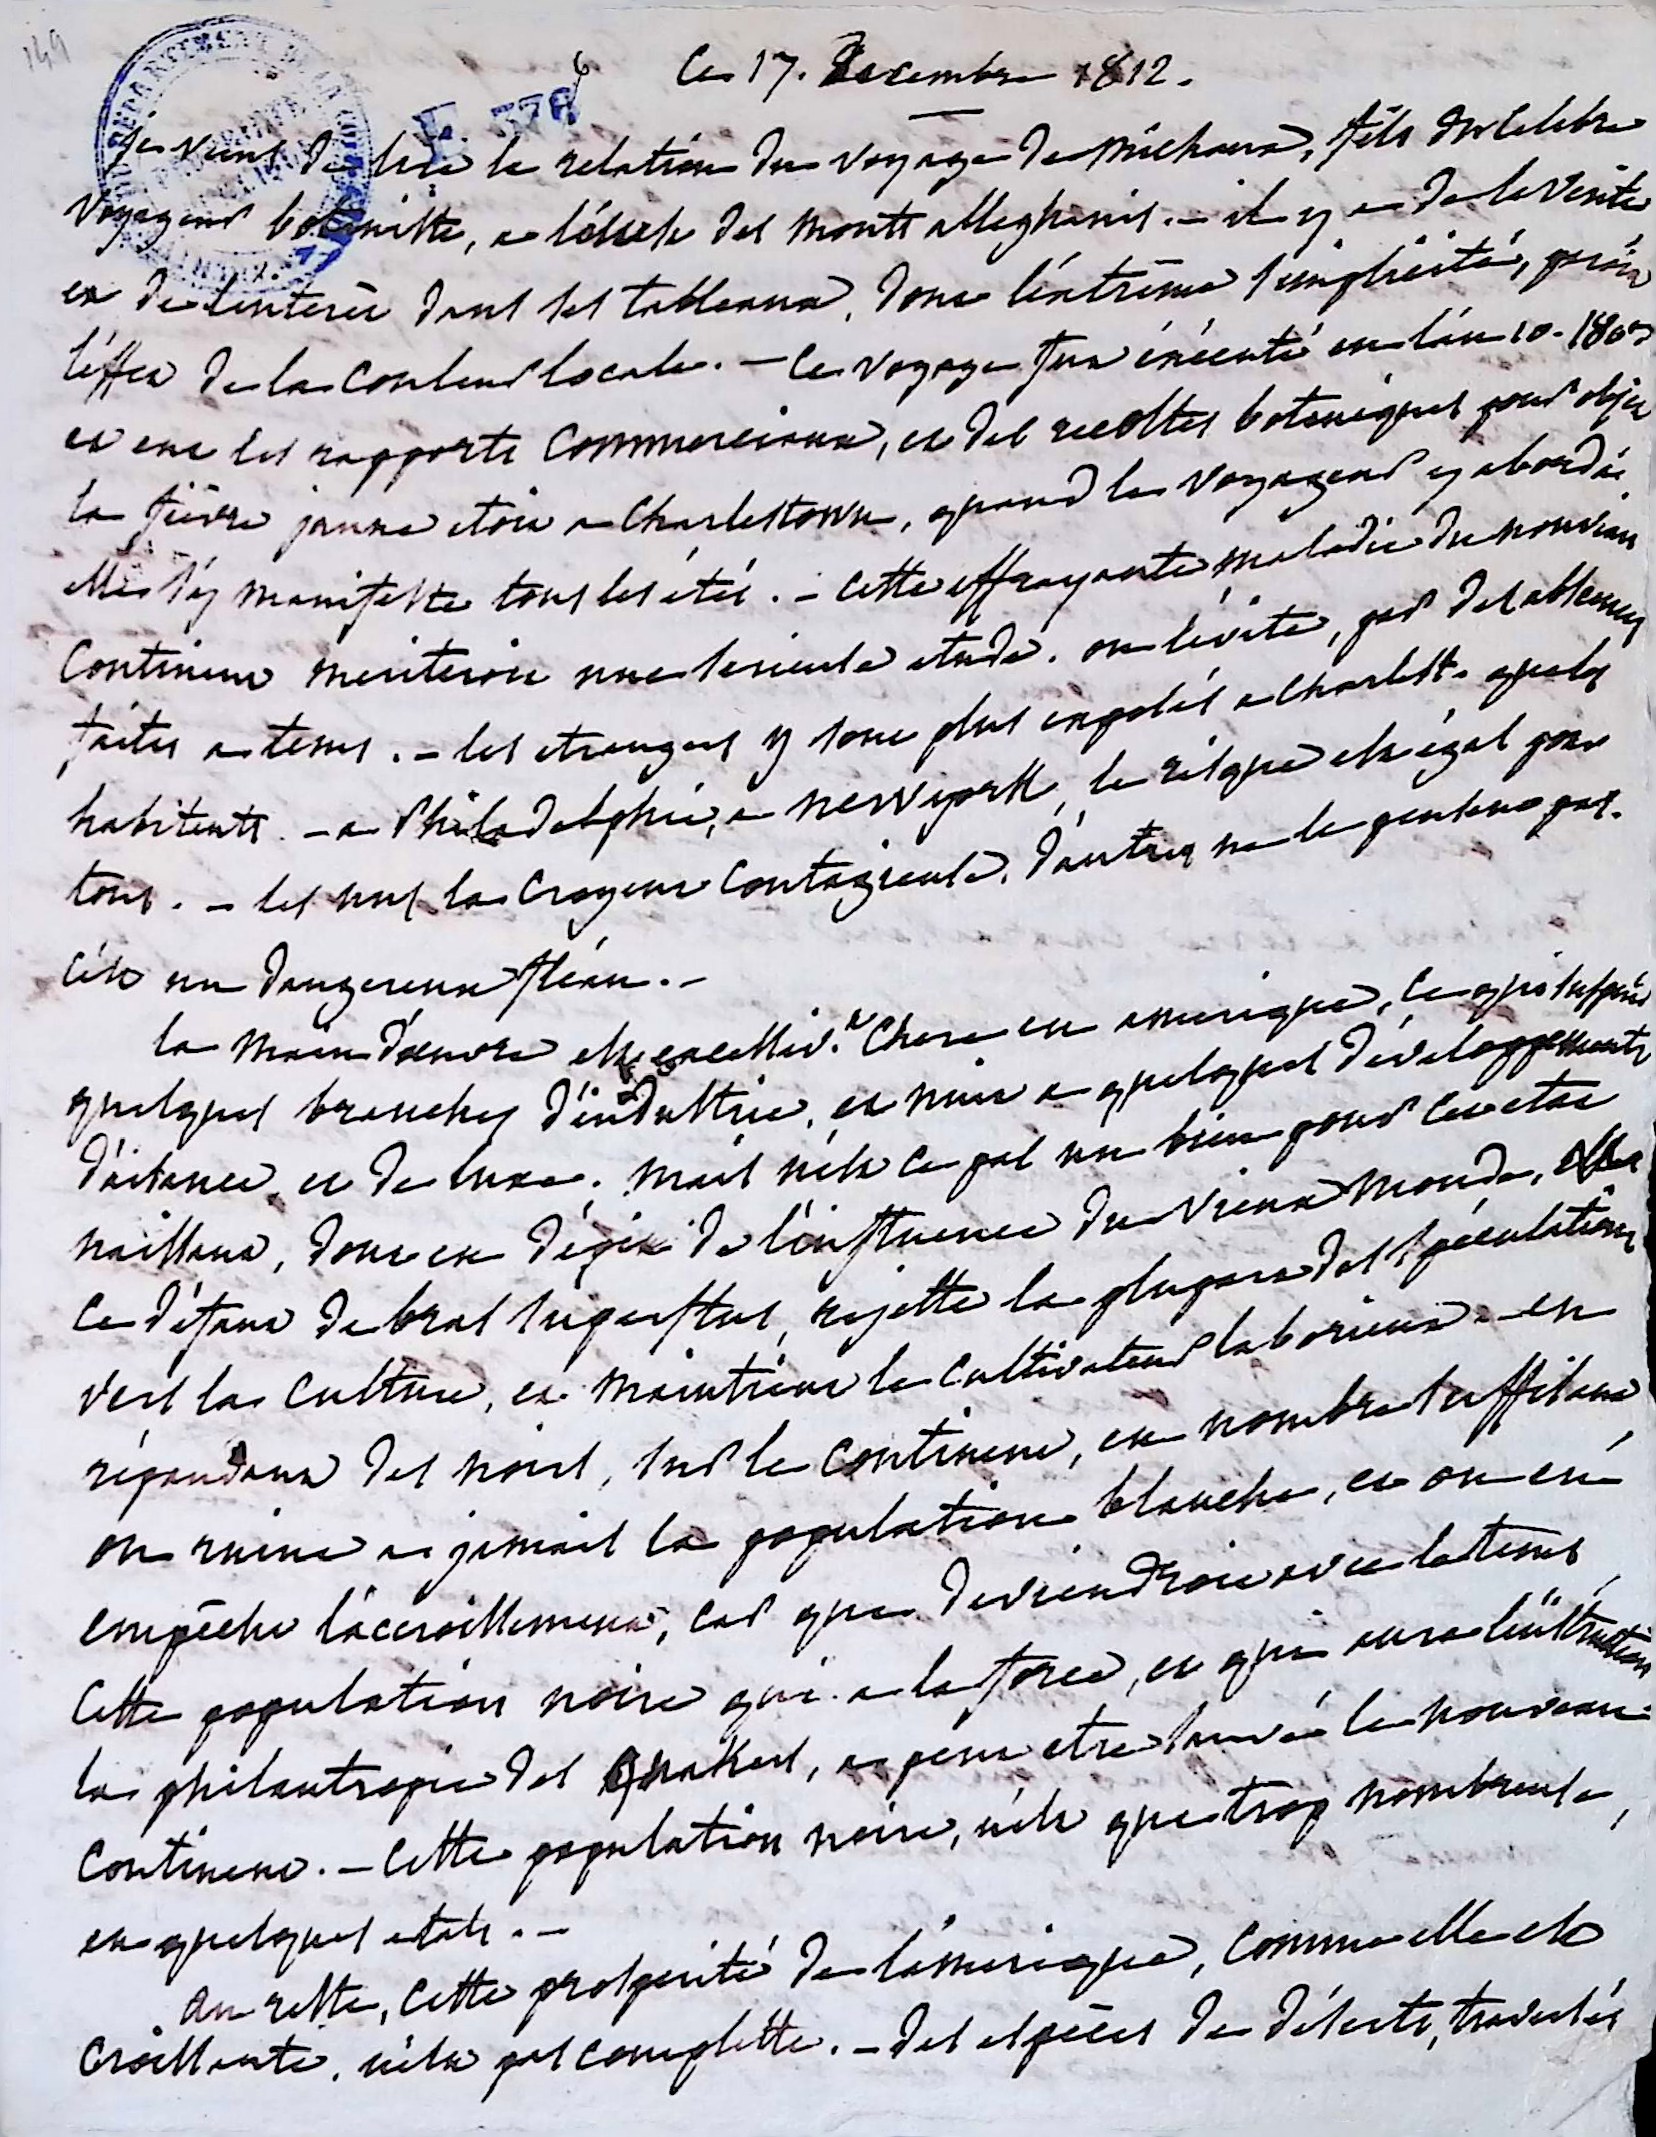 149
ce 17. Decembre 1812.
F 378
je viens de lire la relation du voyage de Michaux, fils du celebre
voyageur botaniste, a l'ouest des monts alleghanis. – il y a de la verité
et de l'interêt dans les tableaux, dont l'extrême simplicité, produit
l'effet de la couleur locale. – ce voyage fut éxécuté en l'an 10. 1802
et eut les rapports commerciaux, et des recoltes botaniques pour objet
la fièvre jaune etoit a Charlestown, quand le voyageur y aborda
elle s'y manifeste tous les étés. – cette effrayante maladie du nouveau
continent meriteroit une serieuse etude. on l'évite, par des absences
faites a tems. – les etrangers y sont plus exposés a Charlest. que les
habitants. – a Philadelphie, a newyork, le risque est égal pour
tous. – les uns la croyent contagieuse, d'autres ne le pensent pas.
c'est un dangereux fléau. –
la main d'œuvre est excessiv.t chere en amerique, ce qui suspend
quelques branches d'industrie, et nuit a quelques développements
d'aisance et de luxe. mais n'est ce pas un bien pour cet etat
naissant, dont en dépit de l'influence du vieux monde,
ce défaut de bras superflus, rejette la plupart des spéculations
vers la culture, et maintient le cultivateur laborieux. – en
répandant des noirs, sur le continent, en nombre suffisant,
on ruine a jamais la population blanche, et on en
empêche l'accroissement, car que deviendroit avec le tems
cette population noire qui a la force, et qui aura l'instruction
la philantropie des Quakers, a peut etre sauvé le nouveau
continent. – cette population noire, n'est que trop nombreuse,
en quelques etats. –
au reste, cette prosperité de l'amerique, comme elle est
croissante, n'est pas complette. – des espèces de déserts, traversés